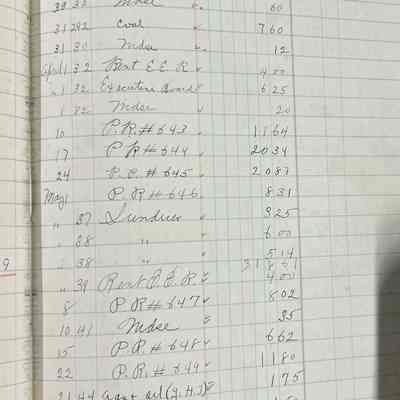 33 Mdse 60
31 292 Coal 7.60
31 30 Mdse 12
April 1 32 Rent E.E.R. 4.00
" 1 32 Executive Board 6 25
1 32 Mdse 20
10 P.R.# 643 11 64
17 P.R.# 644 20 34
24 P.R.# 645 20 87
May 1 P.R.# 646 8 31
" 37 Sundries 3 25
" 38 " 6 00
38 " 5 14
9
" 39 Rent E.E.R. 4.00
8 P.R.# 647 8 02
10 41 Mdse 35
15 P.R.# 648 6 62
22 P.R.# 649 11 80
21 44 Gas + oil (J.H.J) 1 75